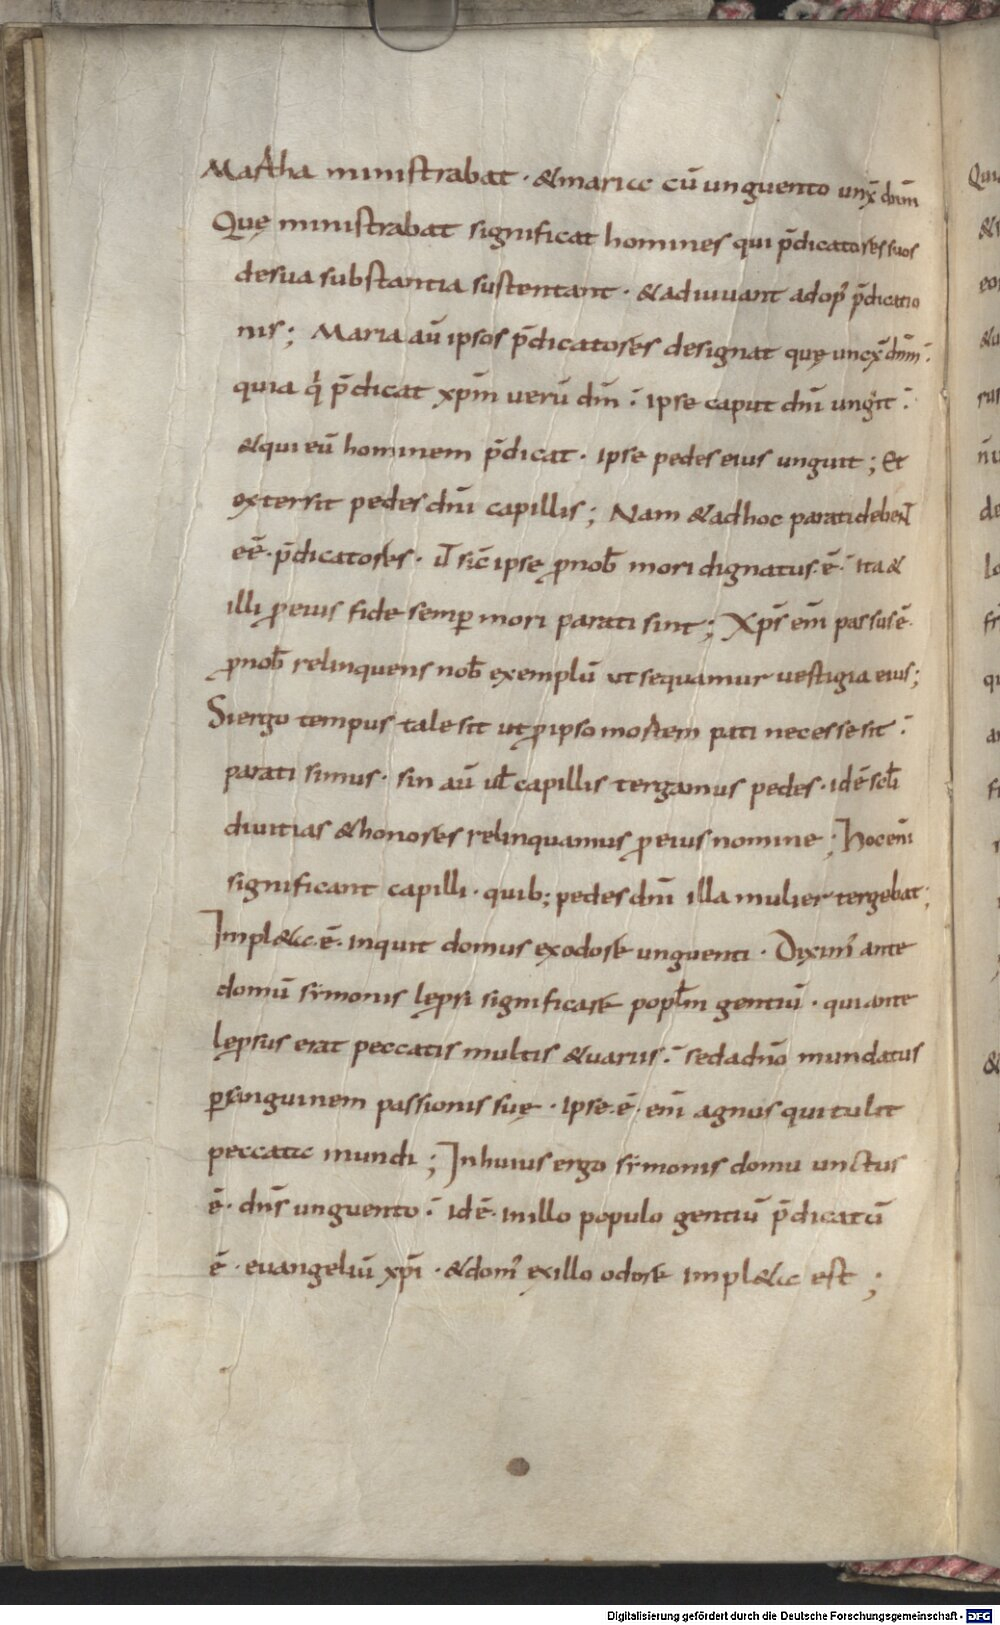 Martha ministrabat · & maria cū unguento unx̄ dnm̄
Quę ministrabat significat homines qui p̄dicatores suos
de sua substantia sustentant · & adiuuant ad op̓ p̄dicatio
nis ; Maria aū ipsos p̄dicatores designat quę uncx̄ dnm̄ :
quia q̓ p̄dicat xp̄m uerū dm̄ : ipse caput dnī ungit :
& qui eū hominem p̄dicat · ipse pedes eius unguit ; Et
extersit pedes dnī capillis ; Nam & ad hoc parati debent
eē · p̄dicatores · ut̄ sic̄ ipse ꝓ nob̄ mori dignatus · ē · : ita &
illi ꝓ eius fide semꝑ mori parati sint ; Xp̄s enī passus ē ·
ꝓ nob̄ relinquens nob̄ exemplū ut sequamur uestigia eius ;
Si ergo tempus tale sit ut ꝓ ipso mortem pati necesse sit :
parati simus · sin aū ul̄ capillis tergamus pedes · id ē scl̄i
diuitias & honores relinquamus ꝓ eius nomine ; Hoc enī
significant capilli · quib; pedes dnī illa mulier tergebat ;
Impl&a · ē · inquit domus ex odore unguenti · Diximꝰ ante
domū symonis leprị significare popl̄m gentiū · qui ante
leprsus erat peccatis multis & uariis : sed a dn̄o mundatus
ꝑ sanguinem passionis suę · ipse · ē · enī agnus qui tulit
peccata mundi ; In huius ergo symonis domu unctus
ē · dn̄s unguento : id ē · in illo populo gentiū p̄dicatū
ē · euangeliū xp̄i · & domꝰ ex illo odore impl&a est ;
Digitalisierung gefördert durch die Deutsche Forschungsgemeinschaft - DFG